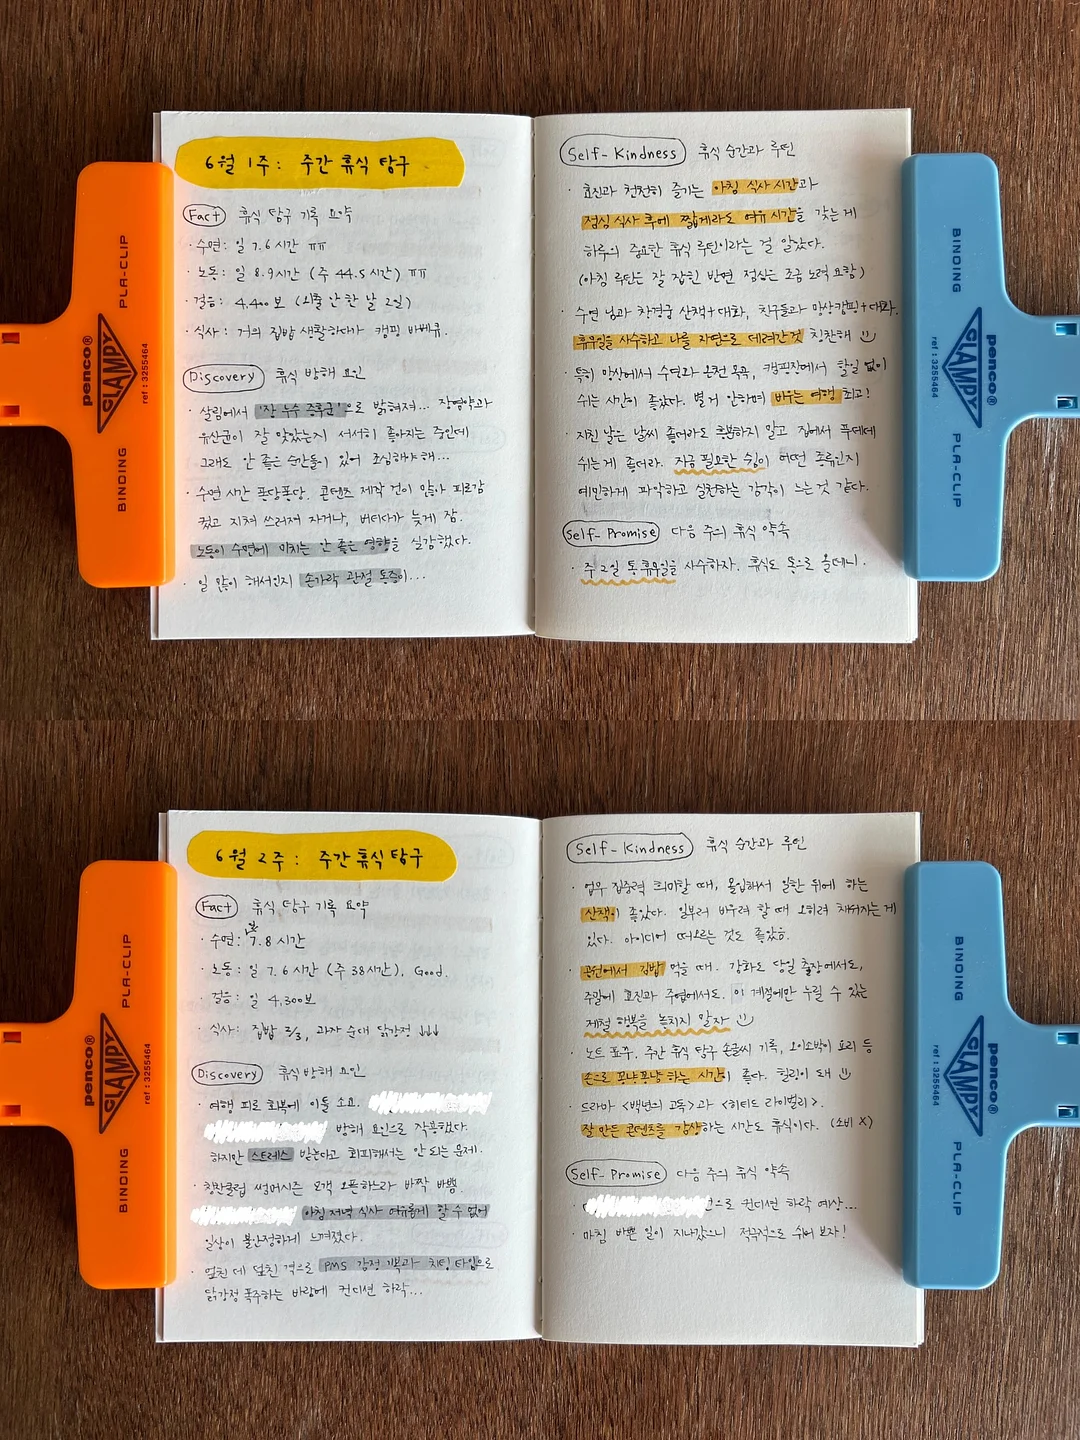 6월 1주: 주간 휴식 탐구
Fact 휴식 탐구 기록 요약
· 수면: 일 7.6시간 ㅠㅠ
· 노동: 일 8.9시간 (주 44.5시간) ㅠㅠ
· 걸음: 4,400보 (외출 난 한 날 2일)
· 식사: 거의 집밥 생활하다가 캠핑 바베큐.
Discovery 휴식 방해 요인
· 살림에서 '장 누수 증후군'으로 밝혀져... 장영양과
유산균이 잘 맞았는지 서서히 좋아지는 중인데
그래도 안 좋은 순간들이 있어 조심해야해...
· 수면 시간 퐁당퐁당. 콘텐츠 제작 건이 많아 피로감
컸고 지쳐 쓰러져 자거나, 버티다가 늦게 잠.
노동이 수면에 미치는 안 좋은 영향을 실감했다.
· 일 많이 해서인지 손가락 관절 통증이...
Self-Kindness 휴식 순간과 루틴
· 효진과 천천히 즐기는 아침 식사 시간과
점심 식사 후에 짧게라도 여유 시간을 갖는 게
하루의 중요한 휴식 루틴이라는 걸 알았다.
(아침 루틴은 잘 잡힌 반면 점심은 조금 노력 요함)
· 수연 님과 창경궁 산책+대화, 친구들과 망상캠핑+대화.
휴유일을 사수하고 나를 자연으로 데려간 것 칭찬해
· 특히 망상에서 수면과 온천 목욕, 캠핑장에서 할일 없이
쉬는 시간이 좋았다. 별 거 안하며 비우는 여행 최고!
· 지친 날은 날씨 좋더라도 흥분하지 말고 집에서 푸데데
쉬는 게 좋더라. 지금 필요한 쉼이 어떤 종류인지
예민하게 파악하고 실천하는 감각이 느는 것 같다.
Self-Promise 다음 주의 휴식 약속
· 주 2일 통휴유일을 사수하자. 휴식도 통으로 올데니.
BINDING PLA-CLIP
penco® CLAMPY
ref : 3255464
BINDING PLA-CLIP
penco® CLAMPY
ref : 3255464
6월 2주: 주간 휴식 탐구
Fact 휴식 탐구 기록 요약
· 수면: 7.8시간
· 노동: 일 7.6시간 (주 38시간), Good.
· 걸음: 일 4,300보
· 식사: 집밥 2/3, 과자 순대 닭강정 ↓↓↓
Discovery 휴식 방해 요인
· 여행 피로 회복에 이틀 소요.
방해 요인으로 작용했다.
하지만 스트레스 받는다고 회피해서는 안 되는 문제.
· 칭찬클럽 썸머시즌 모객 오픈하느라 바짝 바쁨.
아침 저녁 식사 여유롭게 할 수 없어
일상이 불안정하게 느껴졌다.
· 엎친 데 덮친 격으로 PMS 감정 기복과 치팅 타임으로
닭강정 폭주하는 바람에 컨디션 하락...
Self-Kindness 휴식 순간과 루틴
· 업무 집중력 희미할 때, 몰입해서 일한 뒤에 하는
산책이 좋았다. 일부러 비우려 할 때 오히려 채워지는 게
있다. 아이디어 떠오르는 것도 좋았음.
· 공원에서 집밥 먹을 때. 강화도 당일 출장에서도,
주말에 효진과 주엽에서도. 이 계절에만 누릴 수 있는
제철 행복을 놓치지 말자
· 노트 포쭈. 주간 휴식 탐구 손글씨 기록, 오이소박이 요리 등
손으로 꼼냐꼼냐 하는 시간이 좋다. 힐링이 돼
· 드라마 <백년의 고독>과 <히티드 라이벌리>.
잘 만든 콘텐츠를 감상하는 시간도 휴식이다. (소비 X)
Self-Promise 다음 주의 휴식 약속
· 으로 컨디션 하락 예상...
· 마침 바쁜 일이 지나갔으니 적극적으로 쉬어 보자!
BINDING PLA-CLIP
penco® CLAMPY
ref : 3255464
BINDING PLA-CLIP
penco® CLAMPY
ref : 3255464